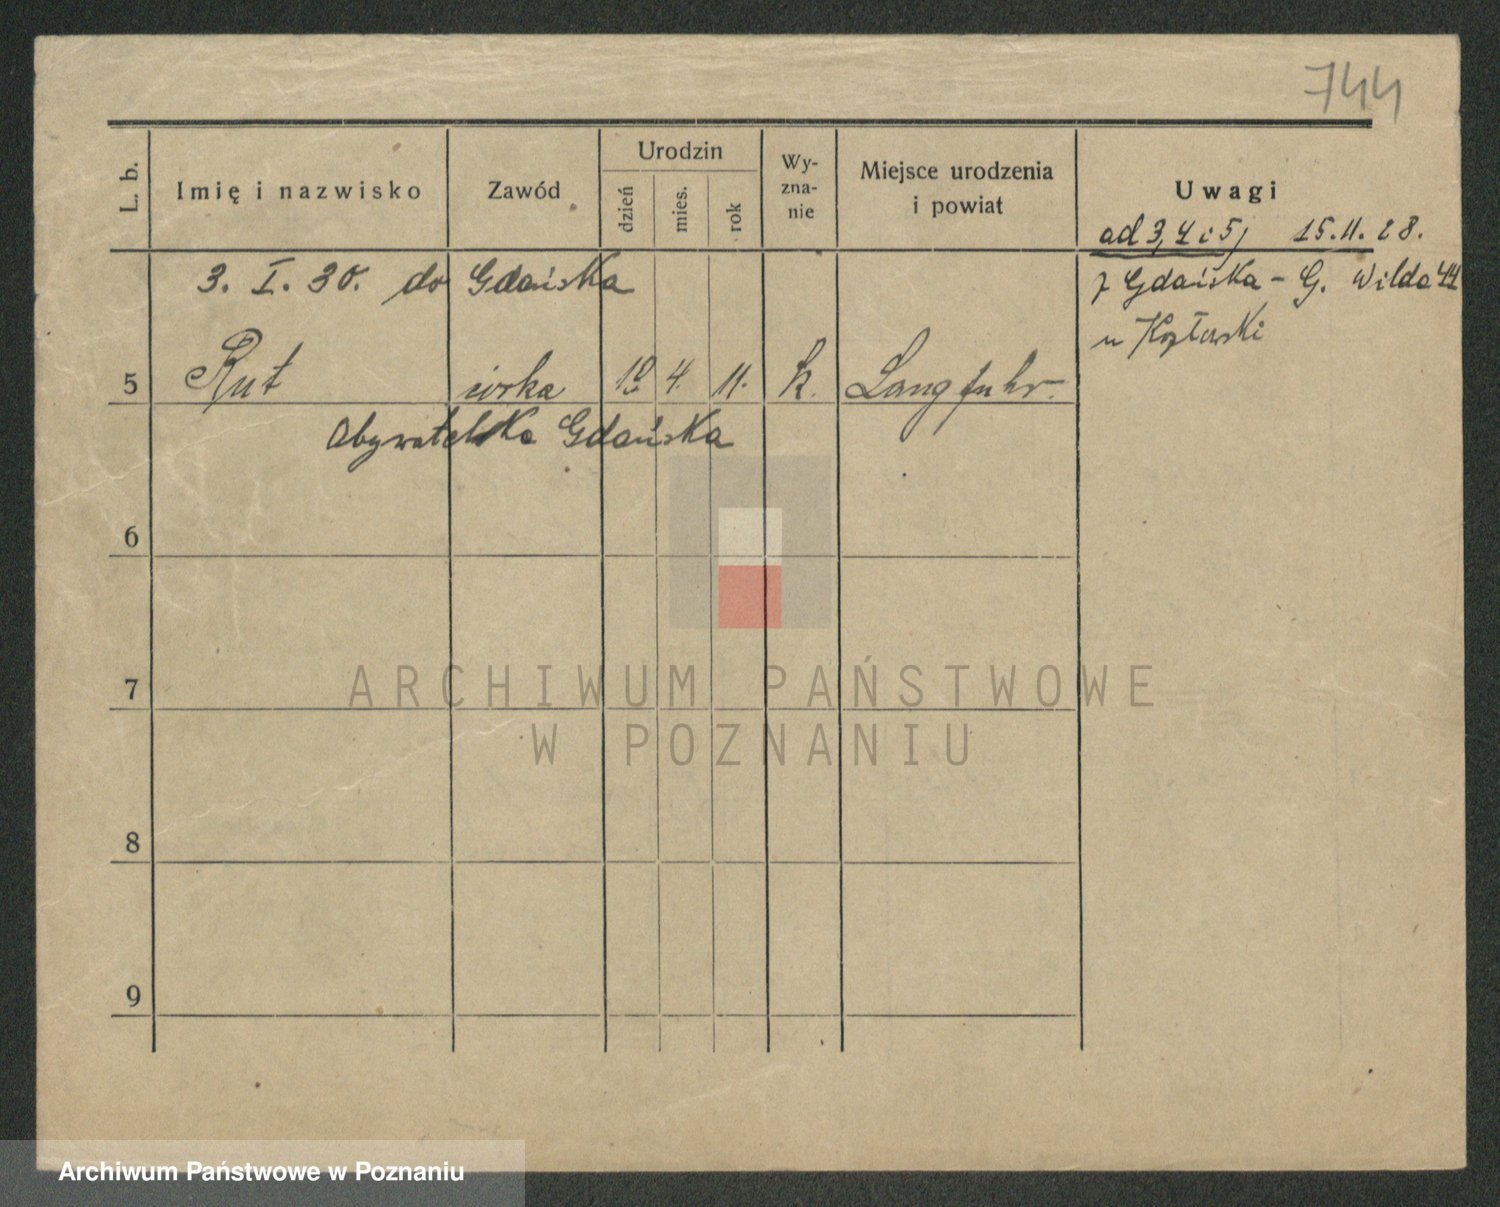 744
L. b.
Imię i nazwisko
Zawód
Urodzin
dzień
mies.
rok
Wy-
zna-
nie
Miejsce urodzenia
i powiat
Uwagi
ad 3, 4 i 5, 15.11.28.
z Gdańska - G. Wilda 44
u Kozłowski
3. I. 30. do Gdańska
5 Rut córka 10 4. 11. k. Langfuhr.
Obywatelka Gdańska
6
7
8
9
ARCHIWUM PAŃSTWOWE
W POZNANIU
Archiwum Państwowe w Poznaniu